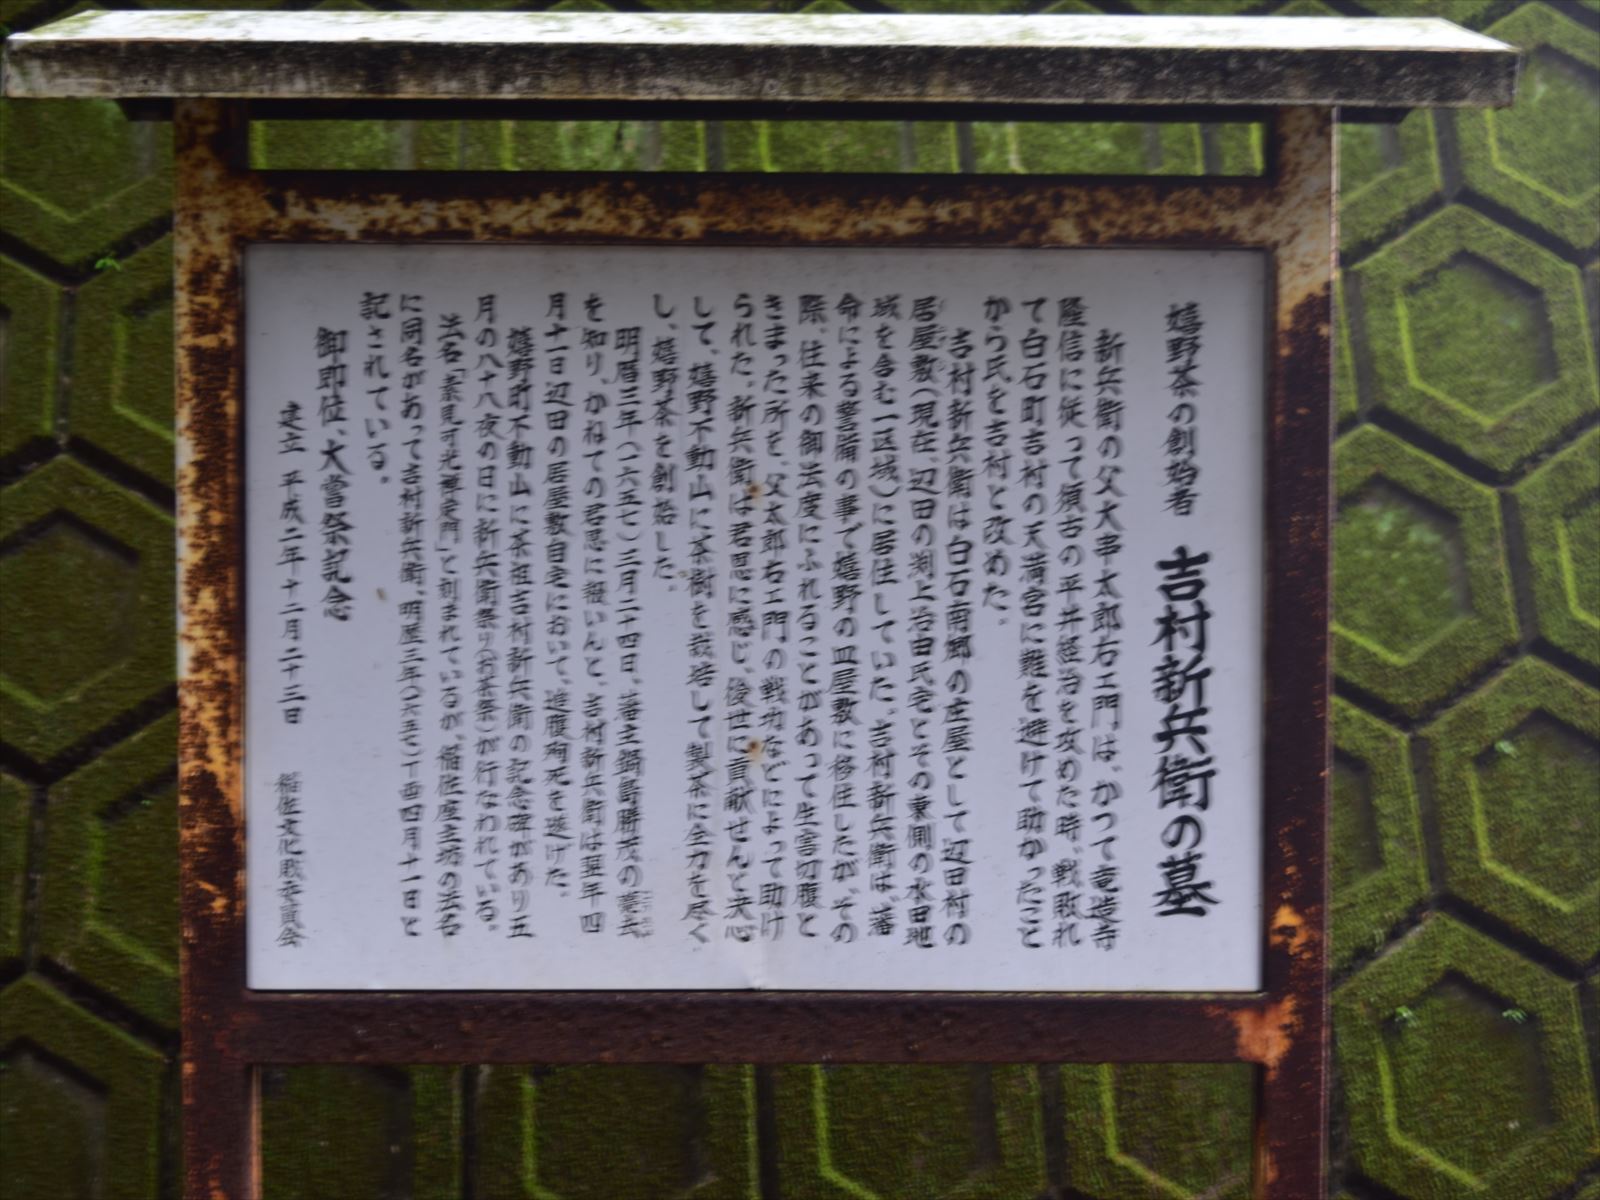 嬉野茶の創始者 吉村新兵衛の墓
新兵衛の父大串太郎右エ門は、かつて竜造寺
隆信に従って須古の平井経治を攻めた時、戦敗れ
て白石町吉村の天満宮に難を避けて助かったこと
から氏を吉村と改めた。
吉村新兵衛は白石南郷の庄屋として辺田村の
居屋敷(現在、辺田の渕上治由氏宅とその東側の水田地
域を含む一区域)に居住していた。吉村新兵衛は、藩
命による警備の事で嬉野の皿屋敷に移住したが、その
際、往来の御法度にふれることがあって生害切腹と
きまった所を、父太郎右エ門の戦功などによって助け
られた。新兵衛は君恩に感じ、後世に貢献せんと決心
して、嬉野不動山に茶樹を栽培して製茶に全力を尽く
し、嬉野茶を創始した。
明暦三年(一六五七)三月二十四日、藩主鍋島勝茂の薨去
を知り、かねての君恩に報いんと、吉村新兵衛は翌年四
月十一日辺田の居屋敷自宅において、追腹殉死を遂げた。
嬉野町不動山に茶祖吉村新兵衛の記念碑があり五
月の八十八夜の日に新兵衛祭り(お茶祭)が行なわれている。
法名「素見可光禅定門」と刻まれているが、稲佐座主坊の法名
に同名があって吉村新兵衛、明歴三年(一六五七)丁酉四月十一日と
記されている。
御即位、大嘗祭記念
建立 平成二年十二月二十三日 稲佐文化財委員会